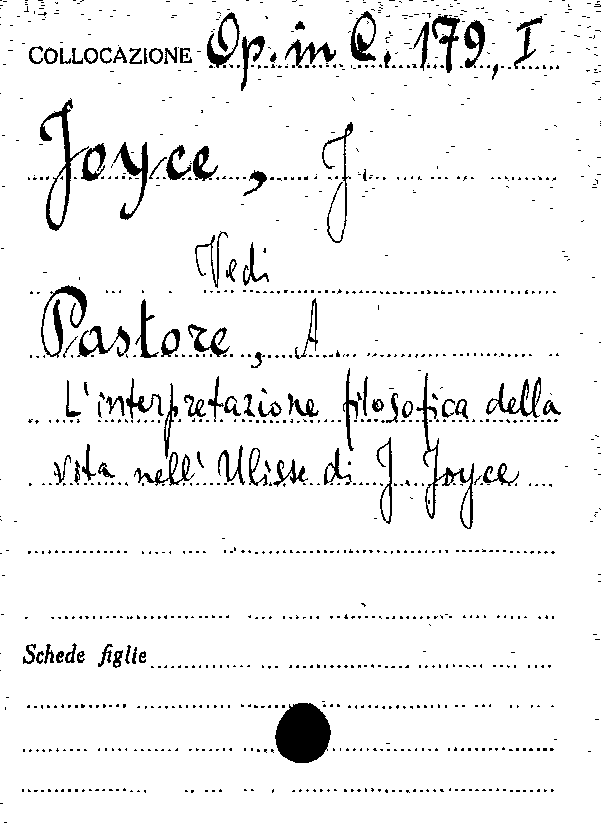 COLLOCAZIONE Op. in C. 179, I
Joyce, J.
Vedi
Pastore, A.
L'interpretazione filosofica della
vita nell'Ulisse di J. Joyce
Schede figlie